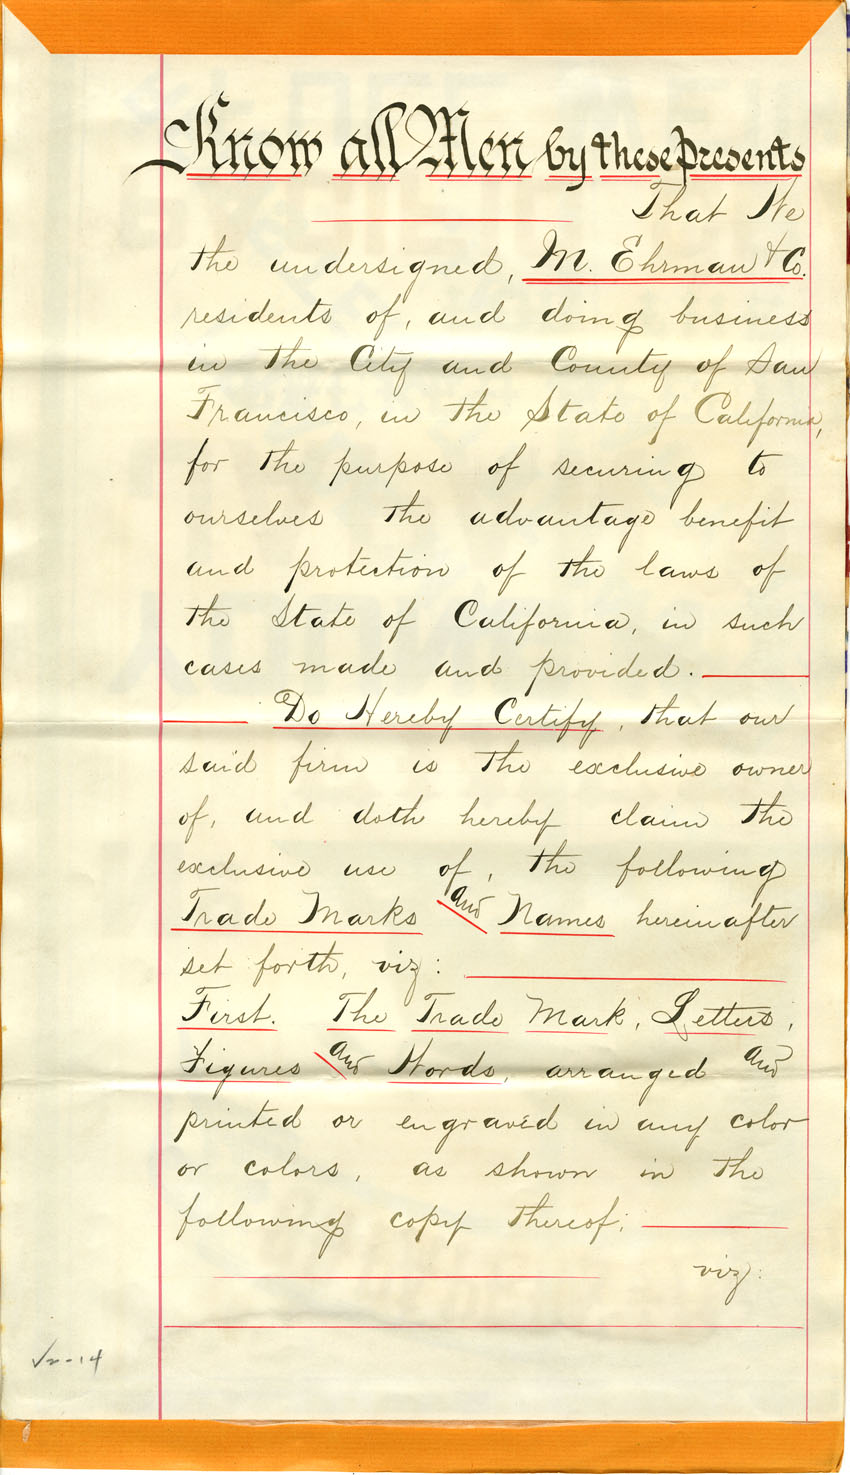 Know all Men by these Presents
That We
the undersigned, M. Ehrman & Co.
residents of, and doing business
in the City and County of San
Francisco, in the State of California,
for the purpose of securing to
ourselves the advantage benefit
and protection of the laws of
the State of California, in such
cases made and provided.
Do Hereby Certify, that our
said firm is the exclusive owner
of, and doth hereby claim the
exclusive use of, the following
Trade Marks and Names hereinafter
set forth, viz:
First. The Trade Mark, Letters,
Figures and Words, arranged and
printed or engraved in any color
or colors, as shown in the
following copy thereof;
viz: